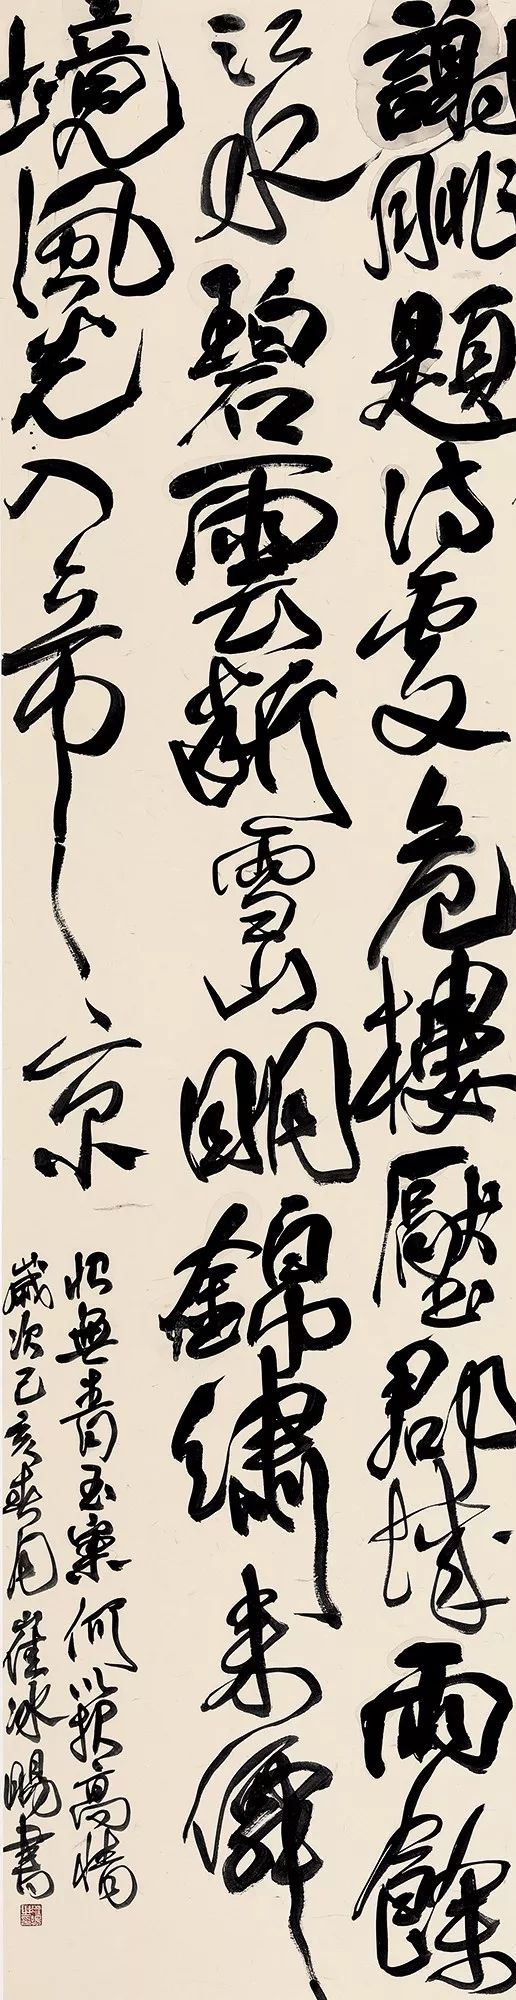 謝朓題詩處危樓壓郡城雨餘
江水碧雲斷雪山明錦繡来僻
境風光入帝京
恨無青玉案何以報高情
歲次己亥春月崔冰賜書